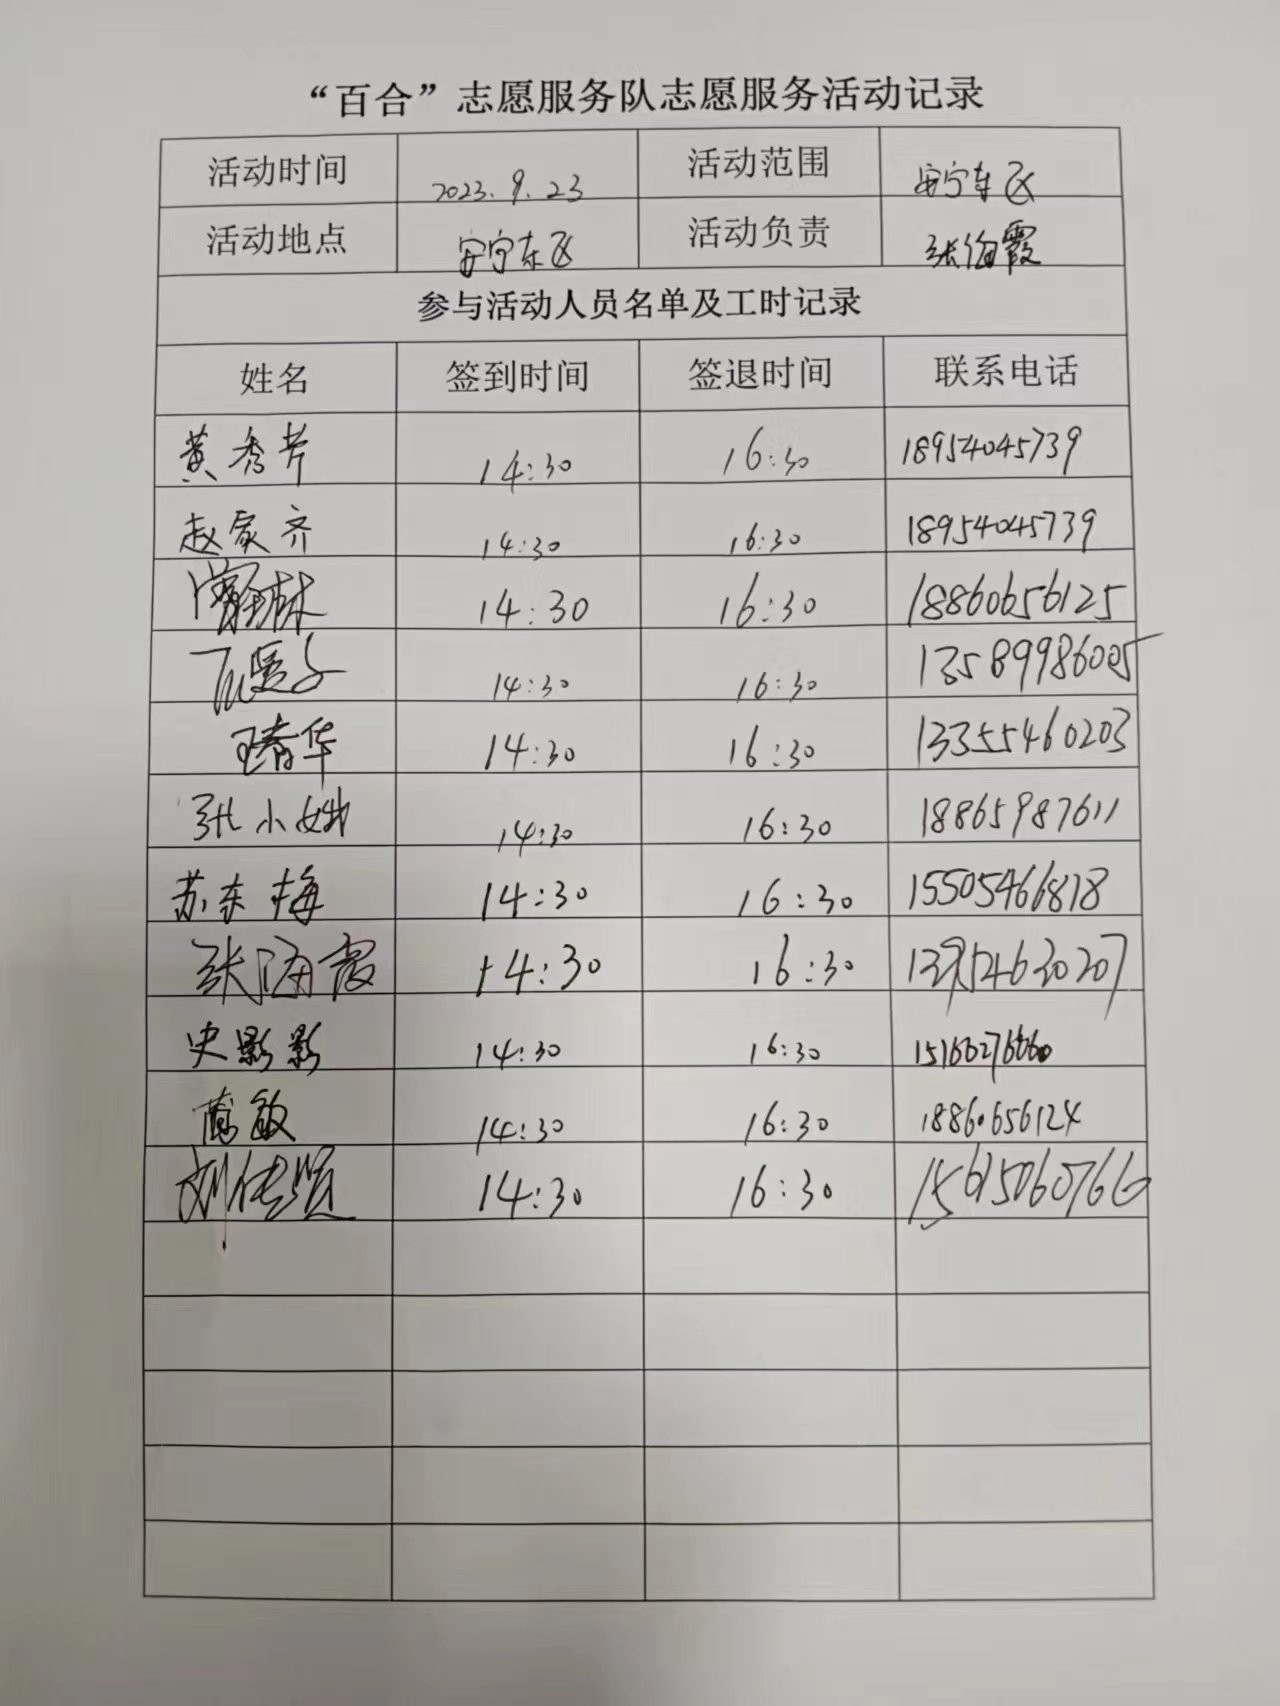 “百合”志愿服务队志愿服务活动记录
活动时间 2023.9.23 活动范围 安宁东区
活动地点 安宁东区 活动负责 张海霞
参与活动人员名单及工时记录
姓名 签到时间 签退时间 联系电话
黄秀芹 14:30 16:30 18954045739
赵家齐 14:30 16:30 18954045739
14:30 16:30 18860656125
14:30 16:30 13589986005
王春华 14:30 16:30 13355460203
张小娥 14:30 16:30 18865987611
苏东梅 14:30 16:30 15505466818
张海霞 14:30 16:30 13954630207
史影影 14:30 16:30
敏 14:30 16:30 18860656124
刘传贤 14:30 16:30 15615060766